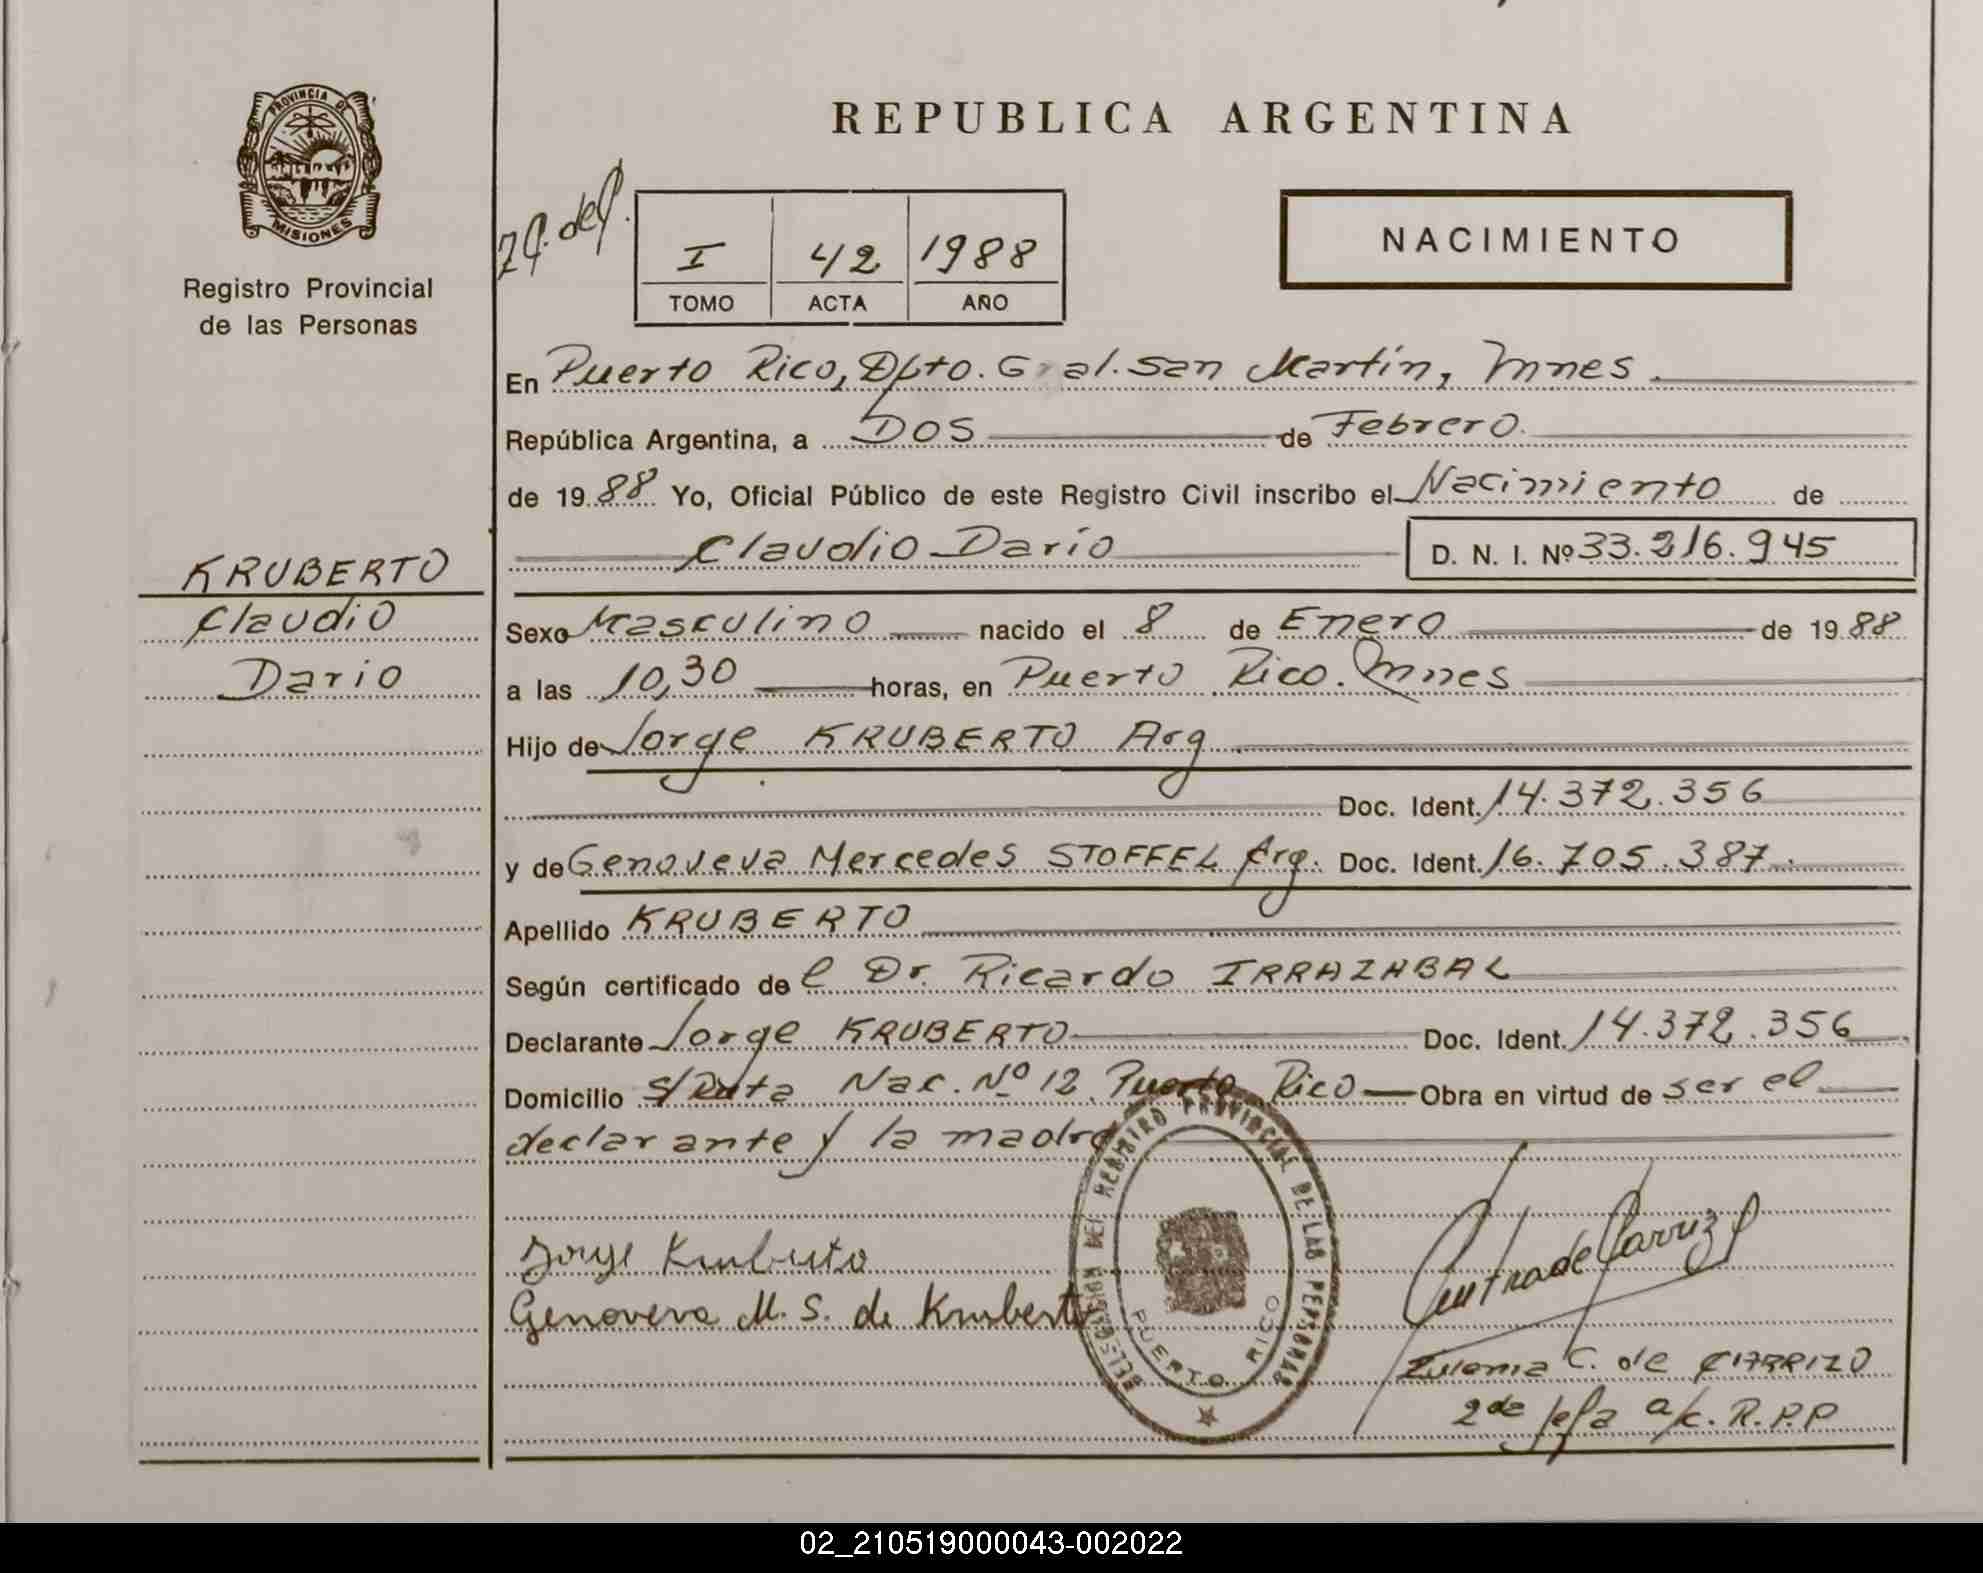 PROVINCIA DE
MISIONES
Registro Provincial
de las Personas
REPUBLICA ARGENTINA
I 42 1988
TOMO ACTA AÑO
NACIMIENTO
En Puerto Rico, Dpto. Gral. San Martín, Mnes.
República Argentina, a Dos de Febrero
de 1988 Yo, Oficial Público de este Registro Civil inscribo el Nacimiento de
Claudio Darío D. N. I. Nº 33.216.945
KRUBERTO
Claudio
Dario
Sexo Masculino nacido el 8 de Enero de 1988
a las 10,30 horas, en Puerto Rico. Mnes
Hijo de Jorge KRUBERTO Arg
Doc. Ident. 14.372.356
y de Genoveva Mercedes STOFFEL Arg. Doc. Ident. 16.705.387.
Apellido KRUBERTO
Según certificado de l Dr. Ricardo IRRAZABAL
Declarante Jorge KRUBERTO Doc. Ident. 14.372.356
Domicilio s/Ruta Nac. Nº 12. Puerto Rico Obra en virtud de ser el
declarante y la madre
Jorge Kruberto
Genoveva M. S. de Kruberto
DELEGACION DEL REGISTRO PROVINCIAL DE LAS PERSONAS
PUERTO RICO
Zulema C. de CARRIZO
2da Jefa a/c. R.P.P
02_210519000043-002022